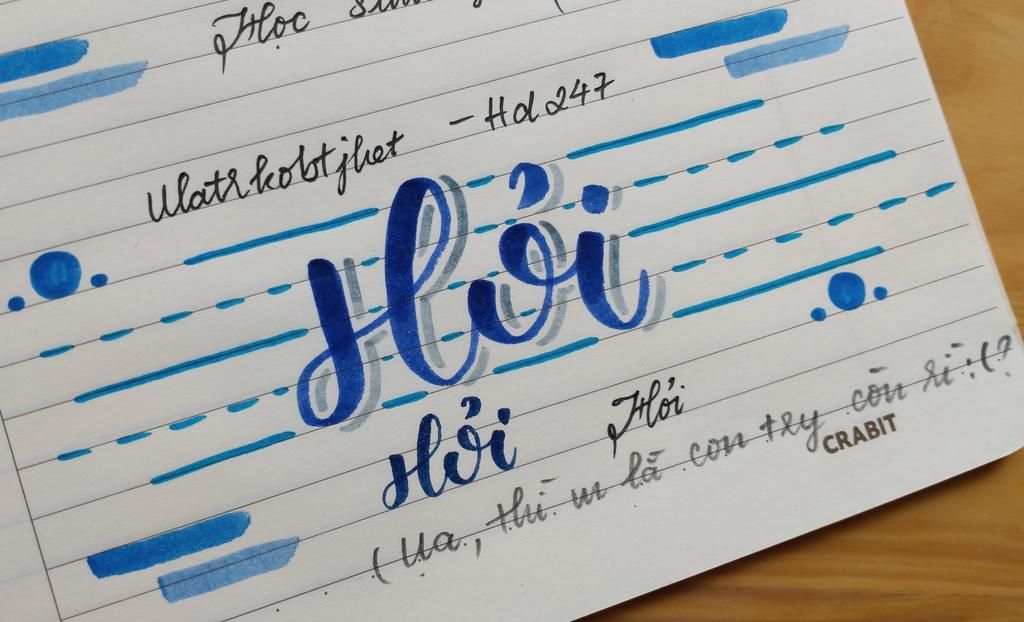 Học sinh
Ulatrkobtjhet - Hd 247
Hỏi
Hỏi Hỏi
(Ụa, thì m là con try còn rì :(?
CRABIT